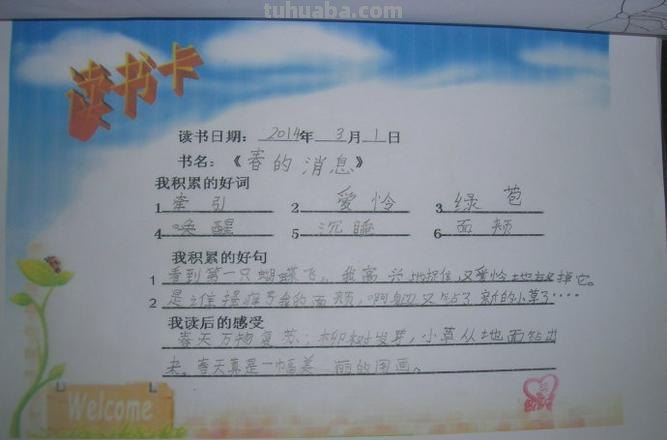 tuhuaba.com
读书卡
读书日期：2014年 3月 1日
书名：《春的消息》
我积累的好词
1 牵引 2 爱怜 3 绿苞
4 唤醒 5 沉睡 6 面颊
我积累的好句
1 看到第一只蝴蝶飞，我高兴地捉住又爱怜地放掉它。
2 是谁 了我的面颊，啊 又钻了新的小草了····
我读后的感受
春天万物复苏；柳树发芽，小草从地面钻出
来。春天真是一幅美丽的图画。
Welcome